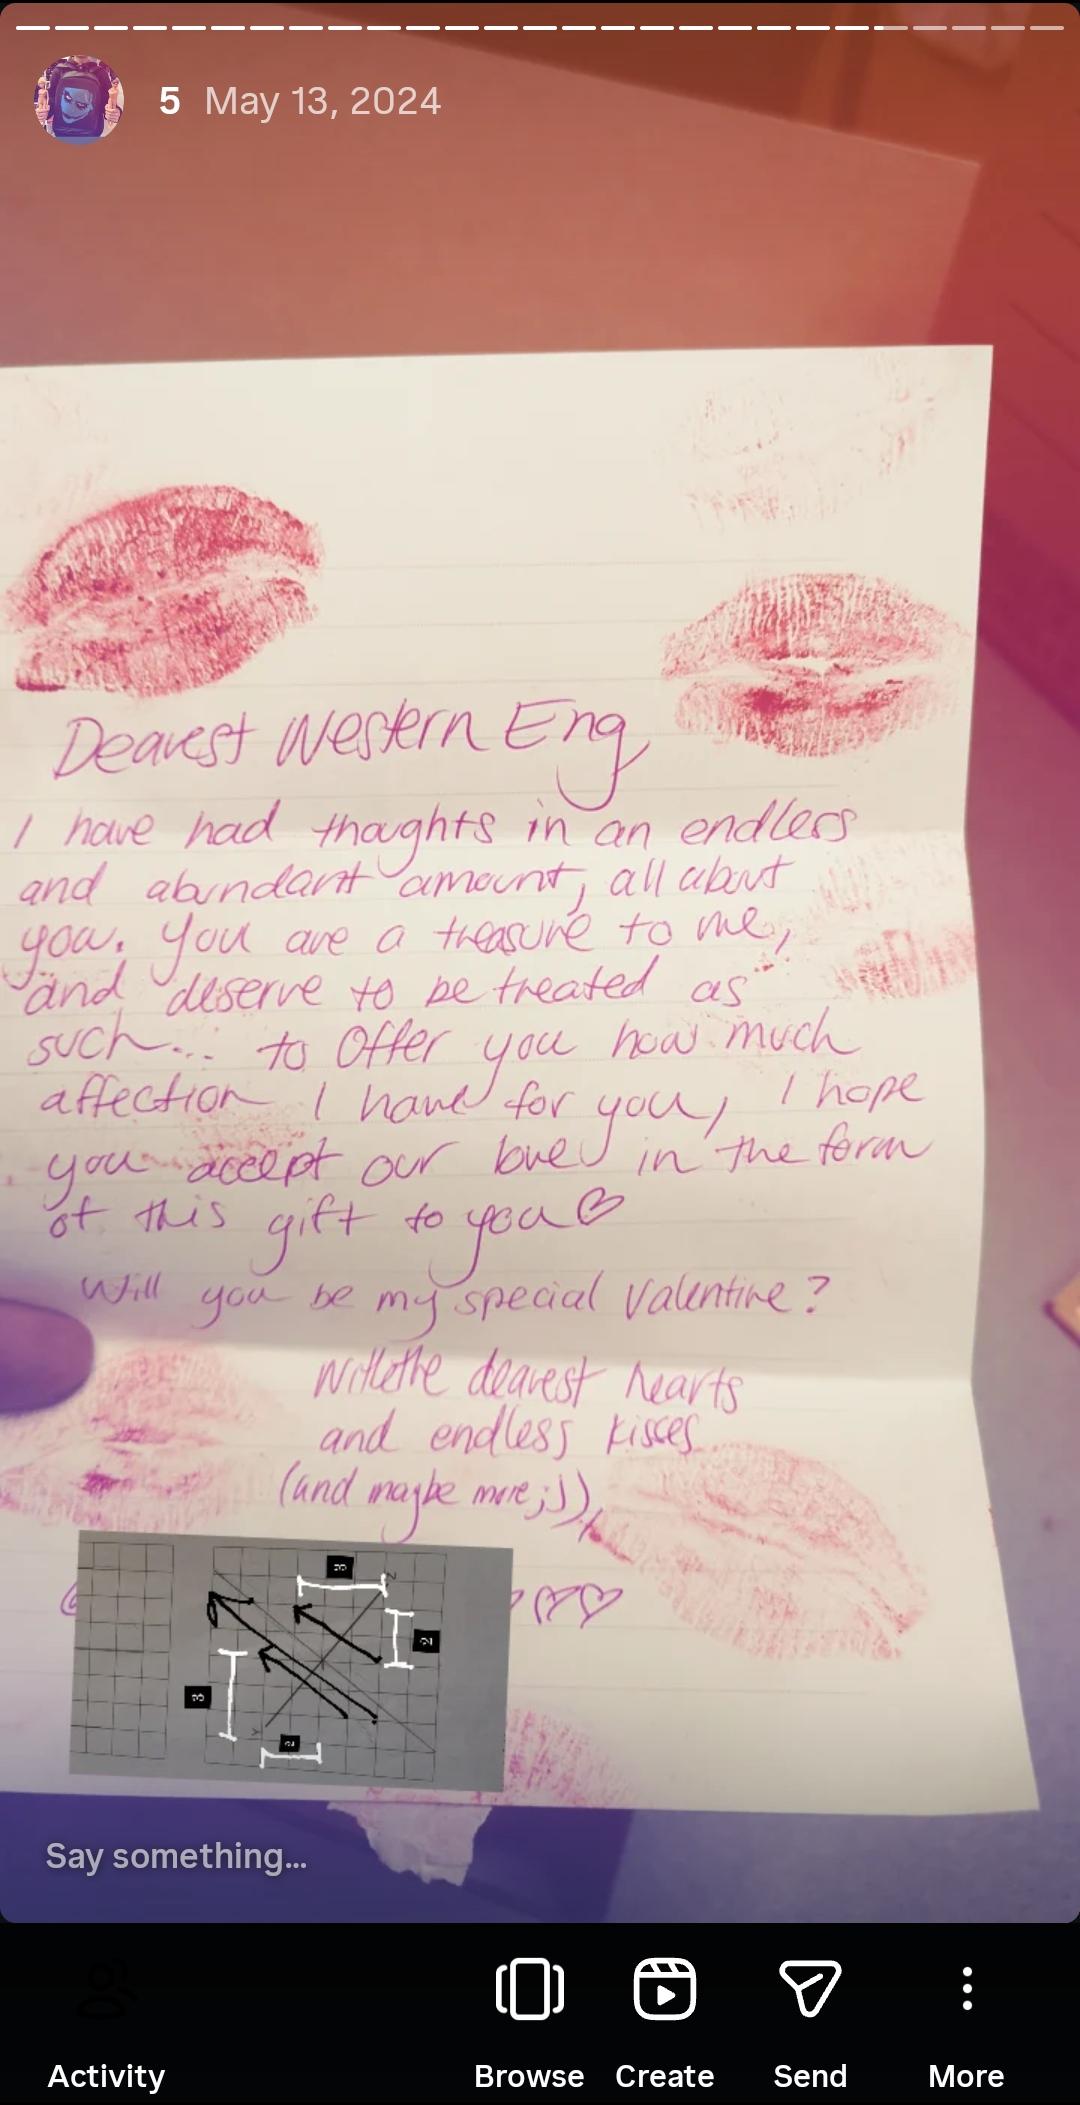 5 May 13, 2024
Dearest Western Eng
I have had thoughts in an endless
and abundant amount, all about
you. You are a treasure to me,
and deserve to be treated as
such... to offer you how much
affection I have for you, I hope
you accept our love in the form
of this gift to you♡
Will you be my special Valentine?
With the dearest hearts
and endless kisses
(and maybe more;)),
♡♡
3
2
3
2
Y
Z
Say something...
Activity
Browse
Create
Send
More